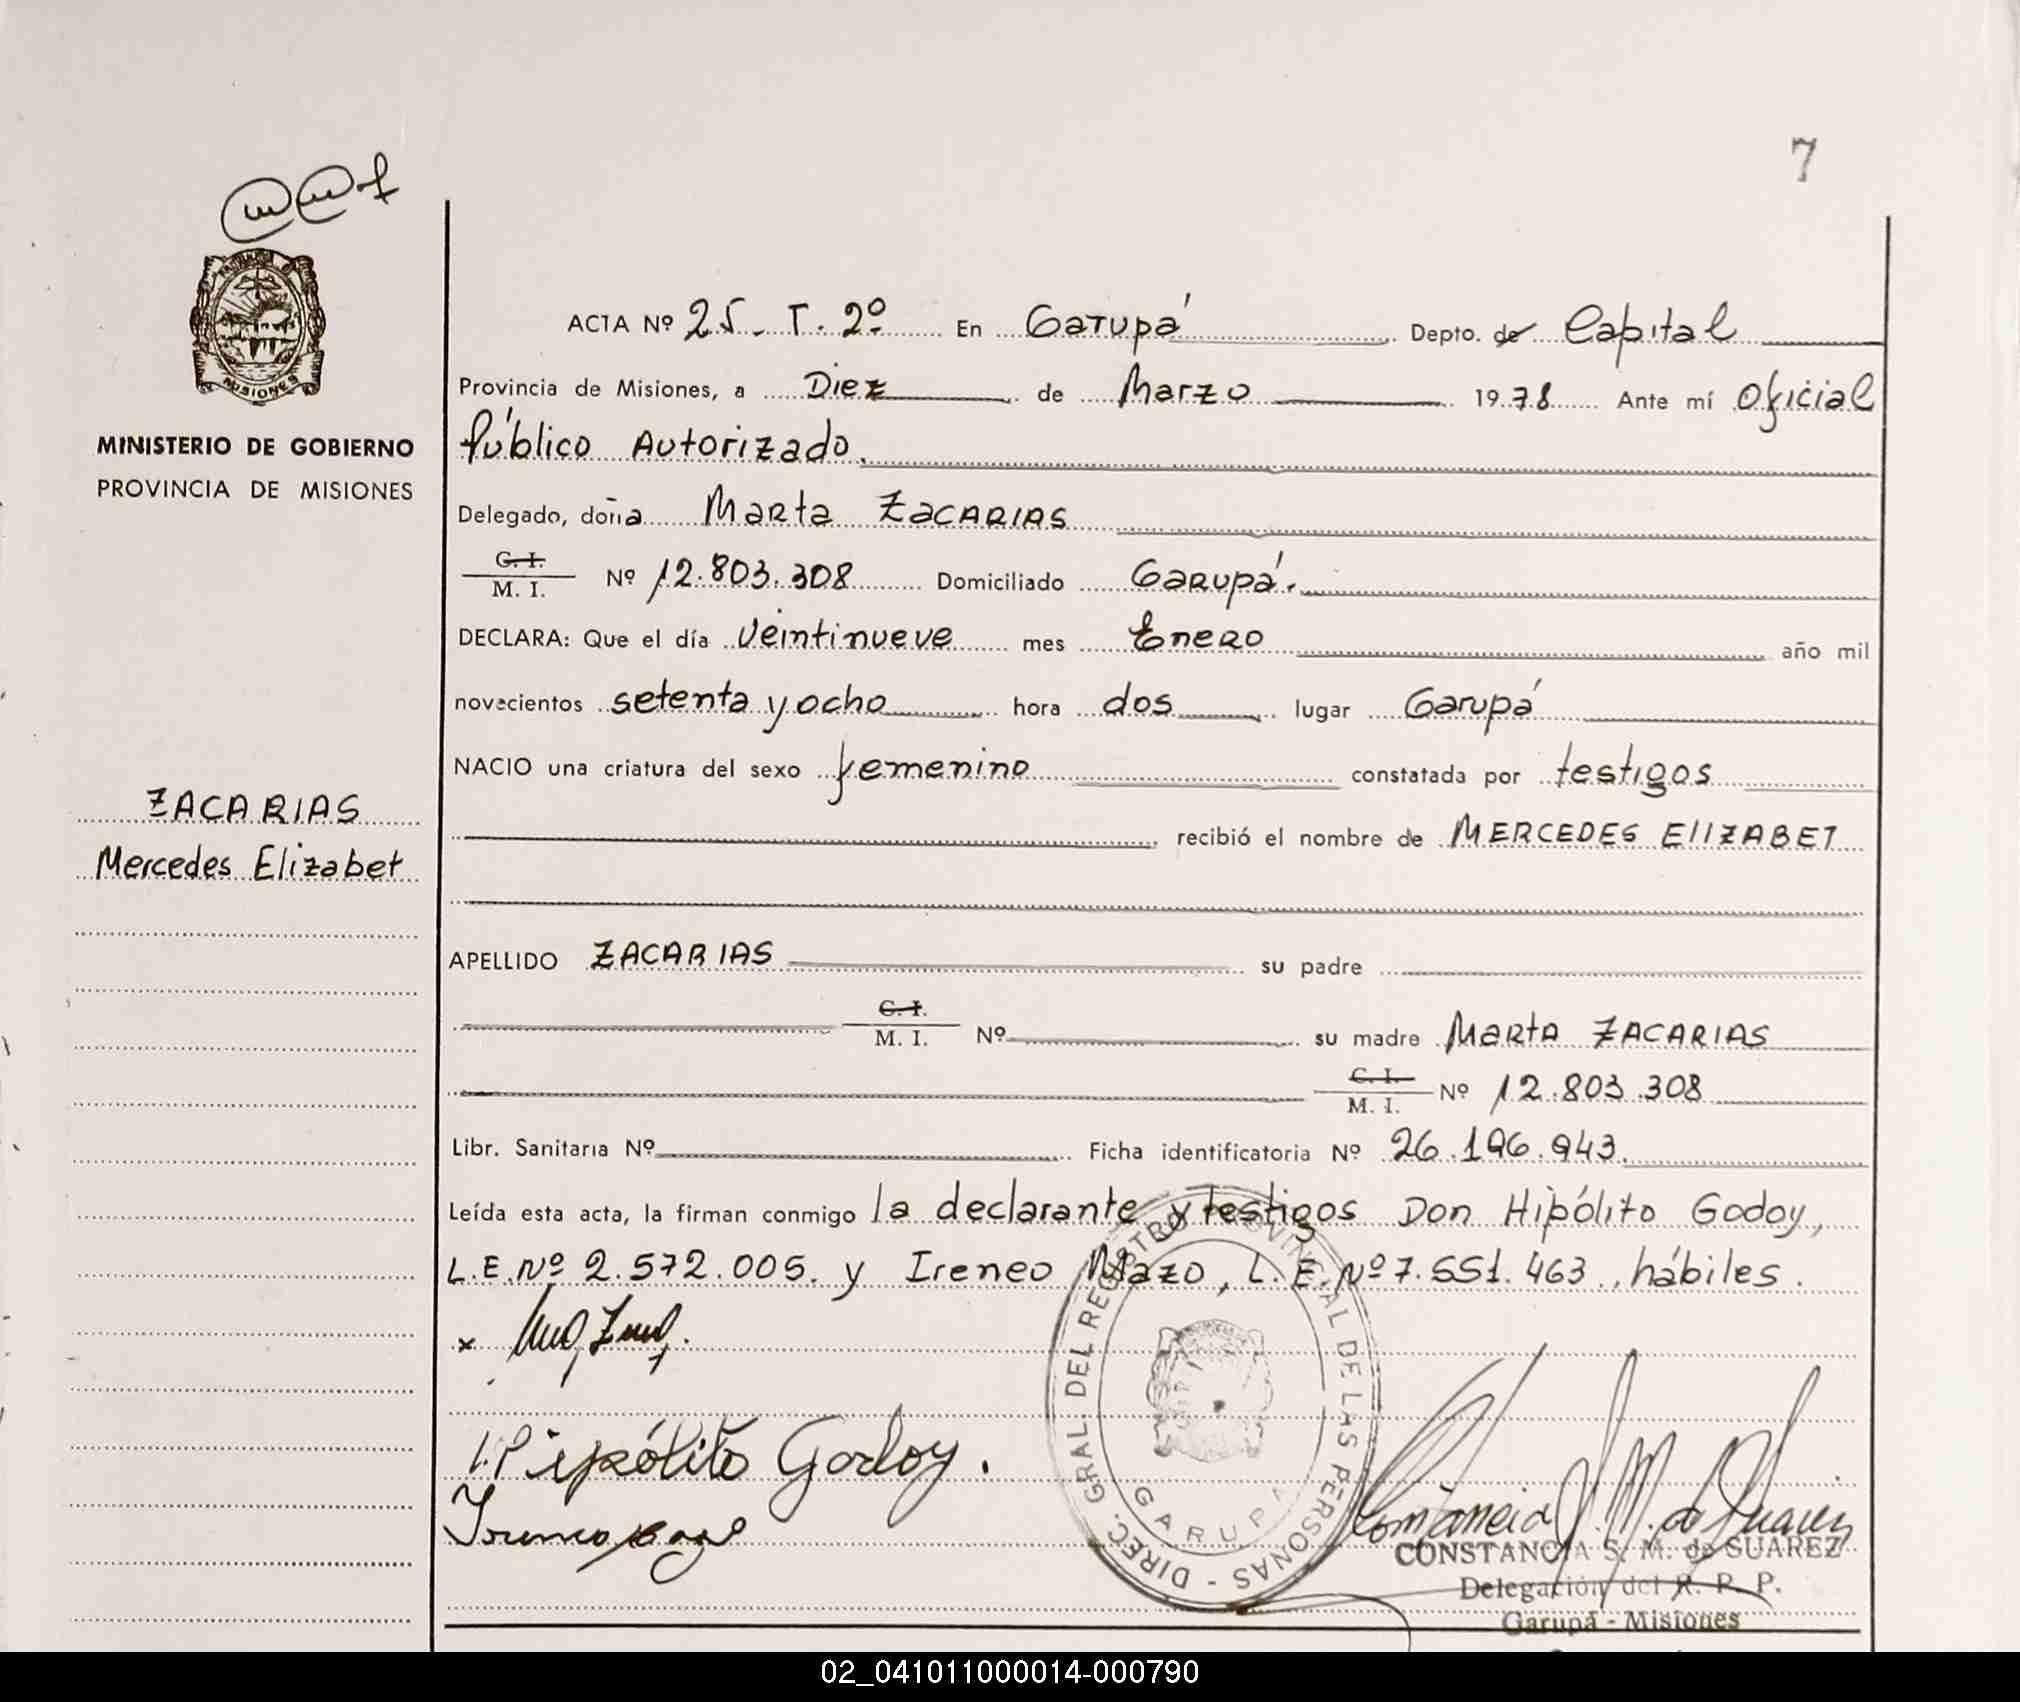 7
MISIONES
MINISTERIO DE GOBIERNO
PROVINCIA DE MISIONES
ZACARIAS
Mercedes Elizabet
ACTA Nº 25. T. 2º En Garupá Depto. de Capital
Provincia de Misiones, a Diez de Marzo 1978 Ante mí Oficial
Público Autorizado.
Delegado, doña Marta ZACARIAS
C. I.
M. I. Nº 12.803.308 Domiciliado Garupá.
DECLARA: Que el día Veintinueve mes Enero año mil
novecientos setenta y ocho hora dos lugar Garupá
NACIO una criatura del sexo femenino constatada por testigos
recibió el nombre de MERCEDES ElIZABET
APELLIDO ZACARIAS su padre
C. I.
M. I. Nº su madre Marta ZACARIAS
C. I.
M. I. Nº 12.803.308
Libr. Sanitaria Nº Ficha identificatoria Nº 26.196.943.
Leída esta acta, la firman conmigo la declarante y testigos Don Hipólito Godoy,
L.E.Nº 2.572.005. y Ireneo Mazo, L.E.Nº 7.551.463, hábiles.
x
Hipólito Godoy.
DIREC. GRAL DEL REGISTRO PROVINCIAL DE LAS PERSONAS -
GARUPA
Constancia S. M. de Suarez
CONSTANCIA S. M. de SUAREZ
Delegación del R. P. P.
Garupá - Misiones
02_041011000014-000790